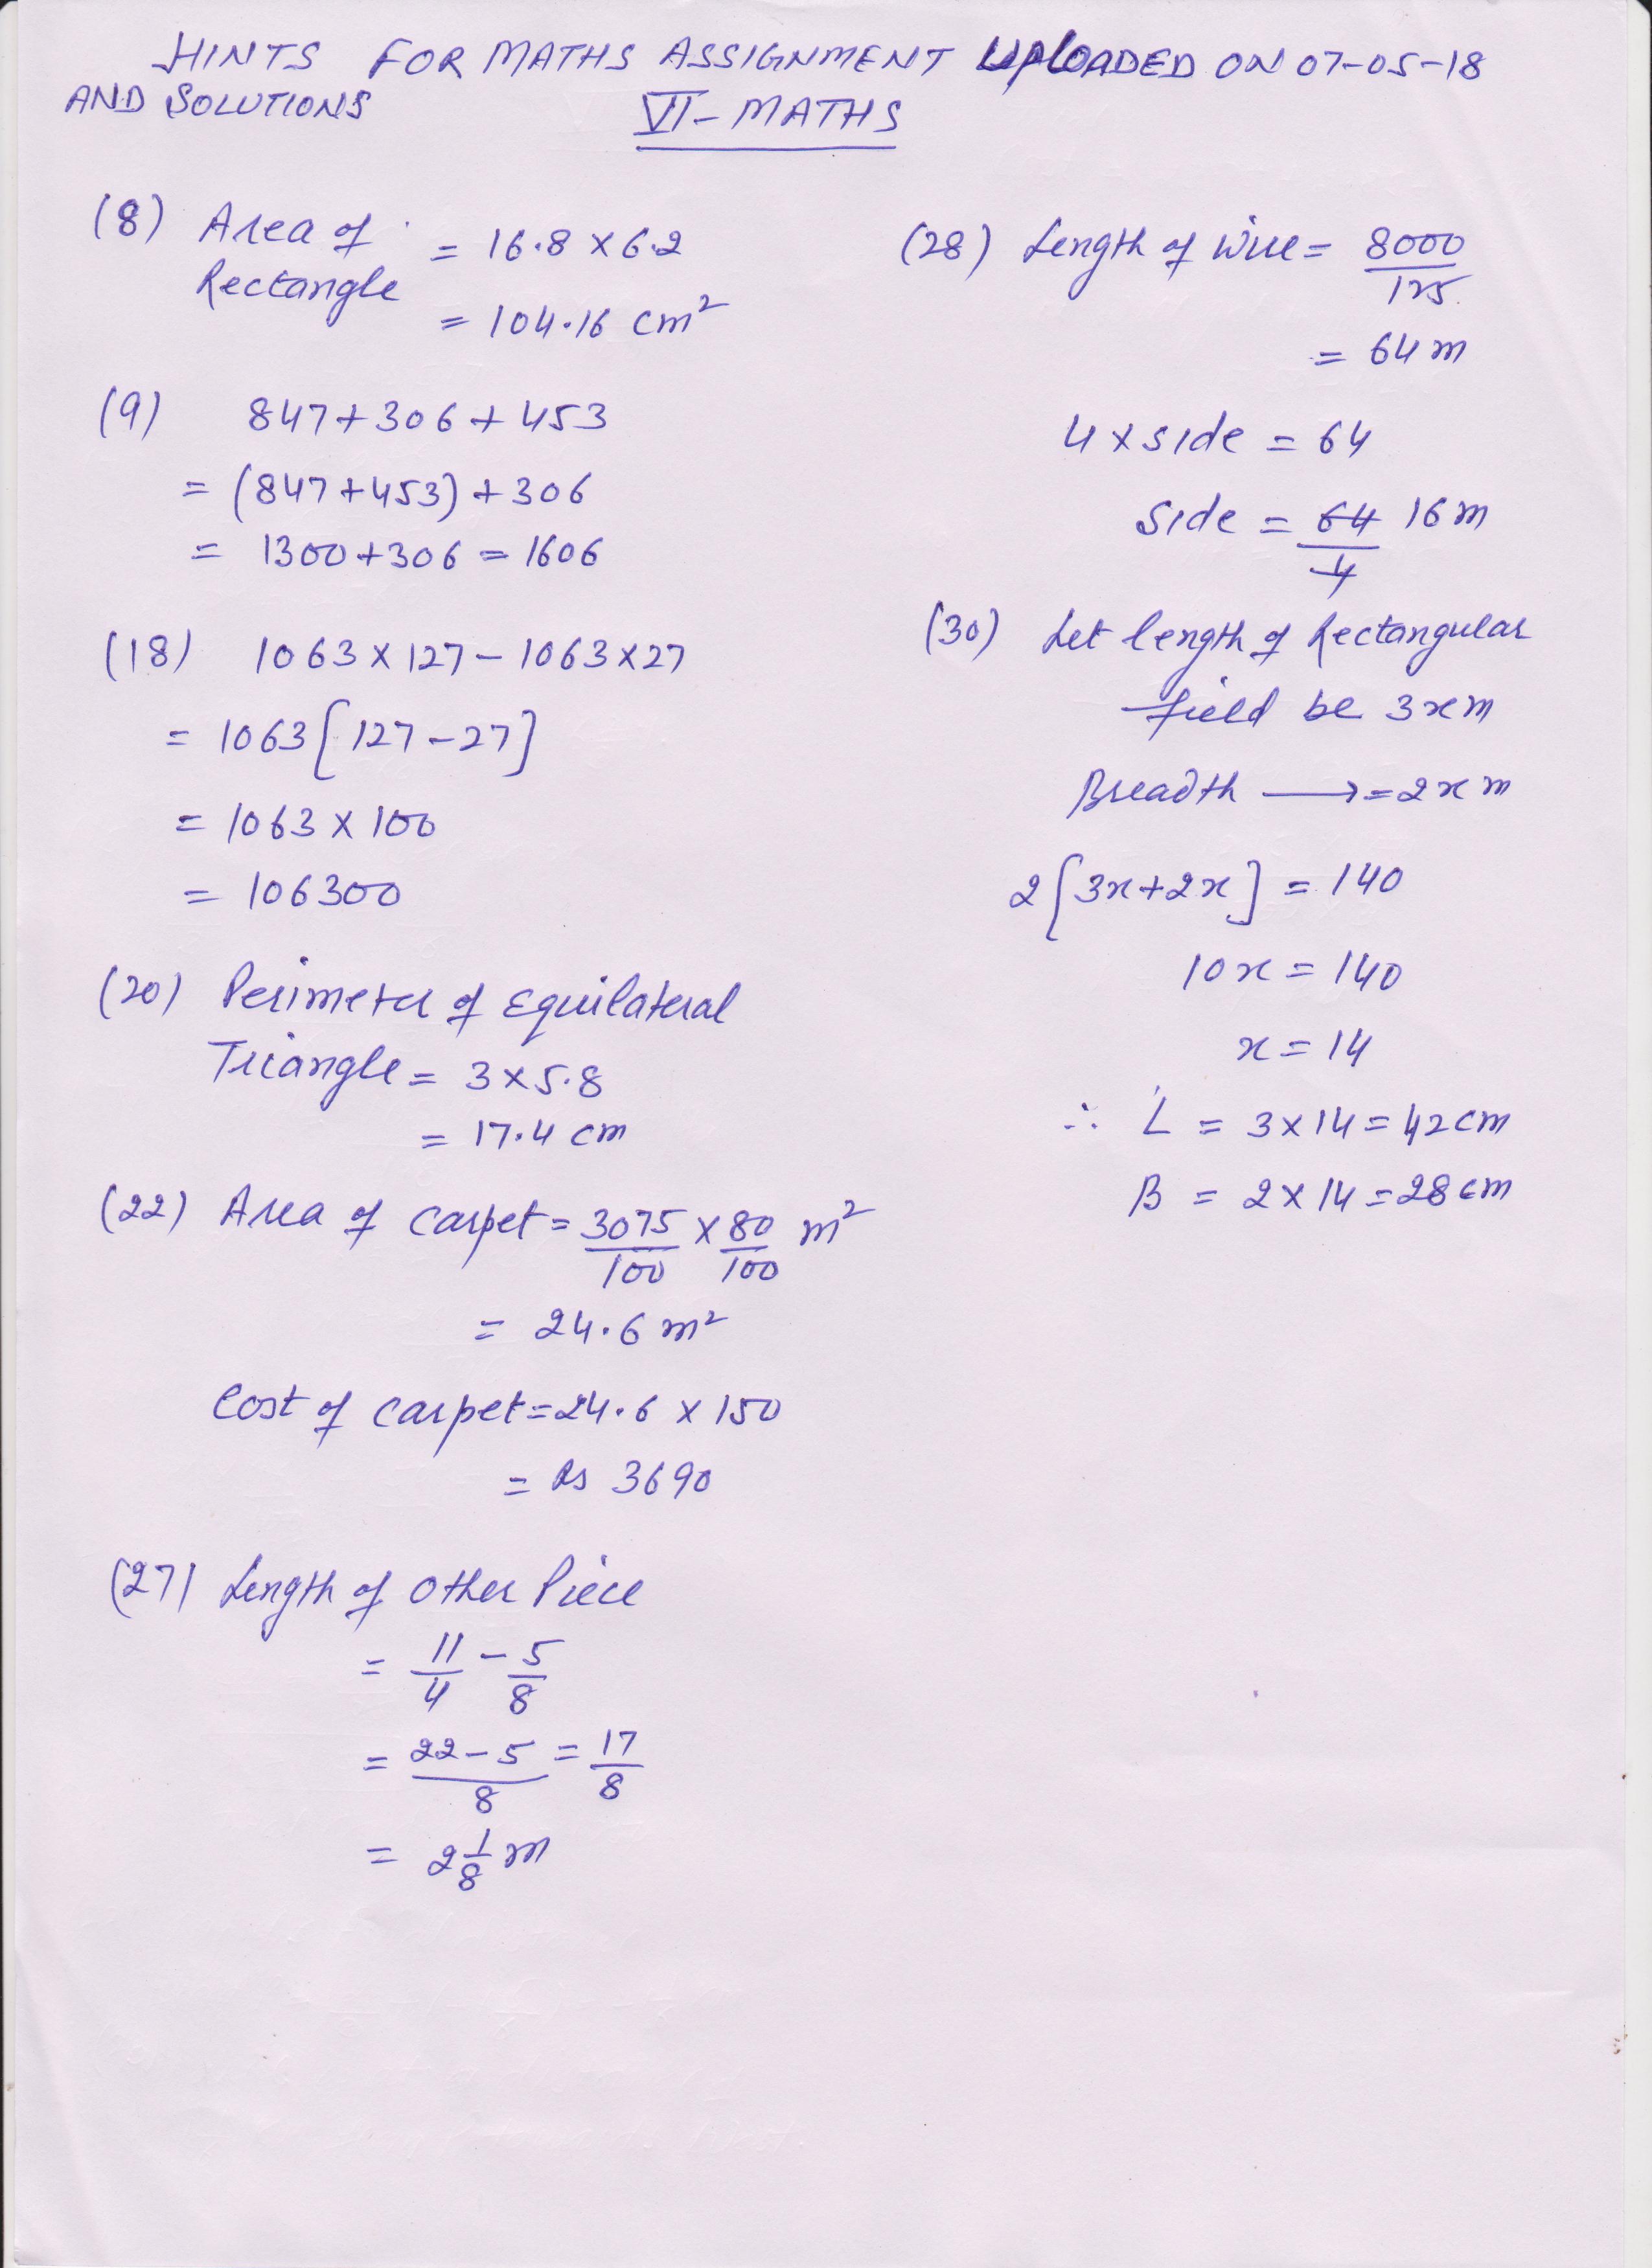 HINTS FOR MATHS ASSIGNMENT UPLOADED ON 07-05-18
AND SOLUTIONS
VI - MATHS
(8) Area of Rectangle = 16.8 × 6.2
= 104.16 cm²
(9) 847 + 306 + 453
= (847 + 453) + 306
= 1300 + 306 = 1606
(18) 1063 × 127 - 1063 × 27
= 1063 [127 - 27]
= 1063 × 100
= 106300
(20) Perimeter of Equilateral
Triangle = 3 × 5.8
= 17.4 cm
(22) Area of carpet = 3075/100 × 80/100 m²
= 24.6 m²
Cost of carpet = 24.6 × 150
= Rs 3690
(27) Length of other Piece
= 11/4 - 5/8
= 22 - 5/8 = 17/8
= 2 1/8 m
(28) Length of wire = 8000/125
= 64 m
4 × side = 64
Side = 64/4 16 m
(30) Let length of Rectangular
field be 3x m
Breadth → = 2x m
2 [3x + 2x] = 140
10x = 140
x = 14
∴ L = 3 × 14 = 42 cm
B = 2 × 14 = 28 cm